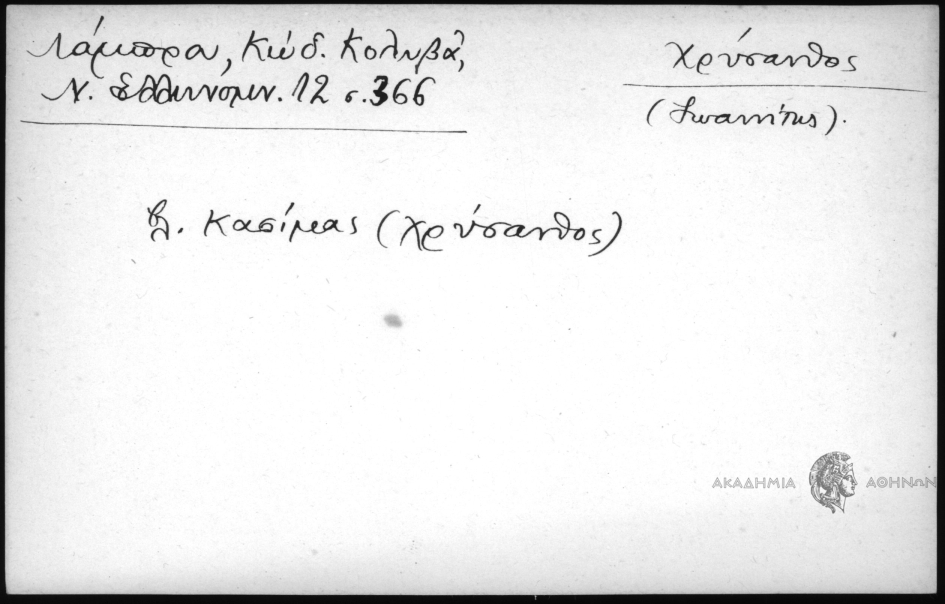 Λάμπρου, Κώδ. Κολυβᾶ,
Ν. Ἑλληνομν. 12 σ. 366
Χρύσανθος
(Ἰωαννίτης).
βλ. Κασίμας (Χρύσανθος)
ΑΚΑΔΗΜΙΑ ΑΘΗΝΩΝ